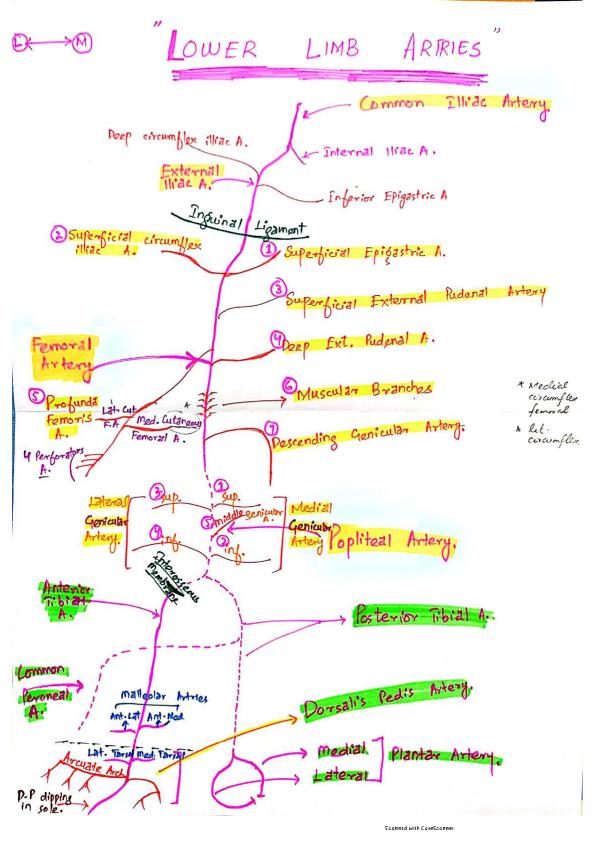 L ↔ M
"LOWER LIMB ARTRIES"
Common Illiac Artery.
Deep circumflex illiac A.
Internal Iliac A.
External
Iliac A.
Inferior Epigastric A
Inguinal Ligament
② Superficial circumflex
illiac A.
① Superficial Epigastric A.
③ Superficial External Pudenal Artery
④ Deep Ext. Pudenal A.
Femoral
Artery
⑤ Profunda
Femoris
A.
Lat. Cut.
F.A
Med. Cutaneous
Femoral A.
*
⑥ Muscular Branches
* Medial
circumflex
femoral
* Lat.
circumflex
⑦ Descending Genicular Artery.
4 Perforators
A.
Lateral
Genicular
Artery.
③ sup.
① sup.
⑤ middle genicular
A.
④ inf.
② inf.
Medial
Genicular
Artery
Popliteal Artery.
Interosseous
Membrane
Anterior
Tibial
A.
Posterior Tibial A.
Common
Peroneal
A.
Malleolar Artries
Ant. Lat
Ant. Med
Dorsalis Pedis Artery.
Lat. Tarsal
Med. Tarsal
Arcuate Arch
D.P dipping
in sole.
Medial
Lateral
Plantar Artery.
Scanned with CamScanner